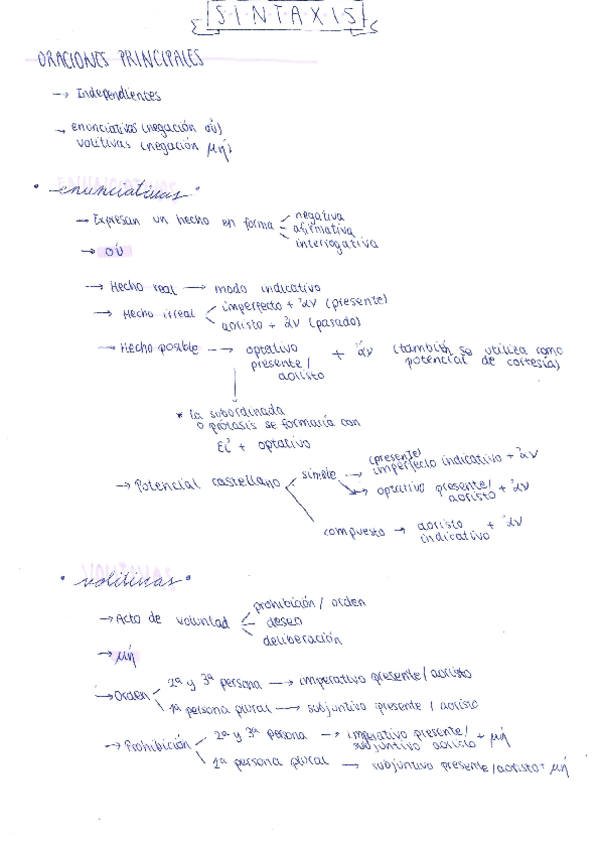 SINTAXIS
ORACIONES PRINCIPALES
→ Independientes
→ enunciativas (negación οὐ)
volitivas (negación μή)
• enunciativas •
→ Expresan un hecho en forma
negativa
afirmativa
interrogativa
→ οὐ
→ Hecho real → modo indicativo
→ Hecho irreal
imperfecto + ἄν (presente)
aoristo + ἄν (pasado)
→ Hecho posible → optativo presente/ aoristo + ἄν (también se utiliza como potencial de cortesía)
* La subordinada
o prótasis se formaría con
Εἰ + optativo
→ Potencial castellano
simple
(presente)
→ imperfecto indicativo + ἄν
→ optativo presente/ aoristo + ἄν
compuesto → aoristo indicativo + ἄν
• volitivas •
→ Acto de voluntad
prohibición / orden
deseo
deliberación
→ μή
→ Orden
2ª y 3ª persona → imperativo presente/ aoristo
1ª persona plural → subjuntivo presente / aoristo
→ Prohibición
2ª y 3ª persona → imperativo presente/ subjuntivo aoristo + μή
1ª persona plural → subjuntivo presente /aoristo + μή